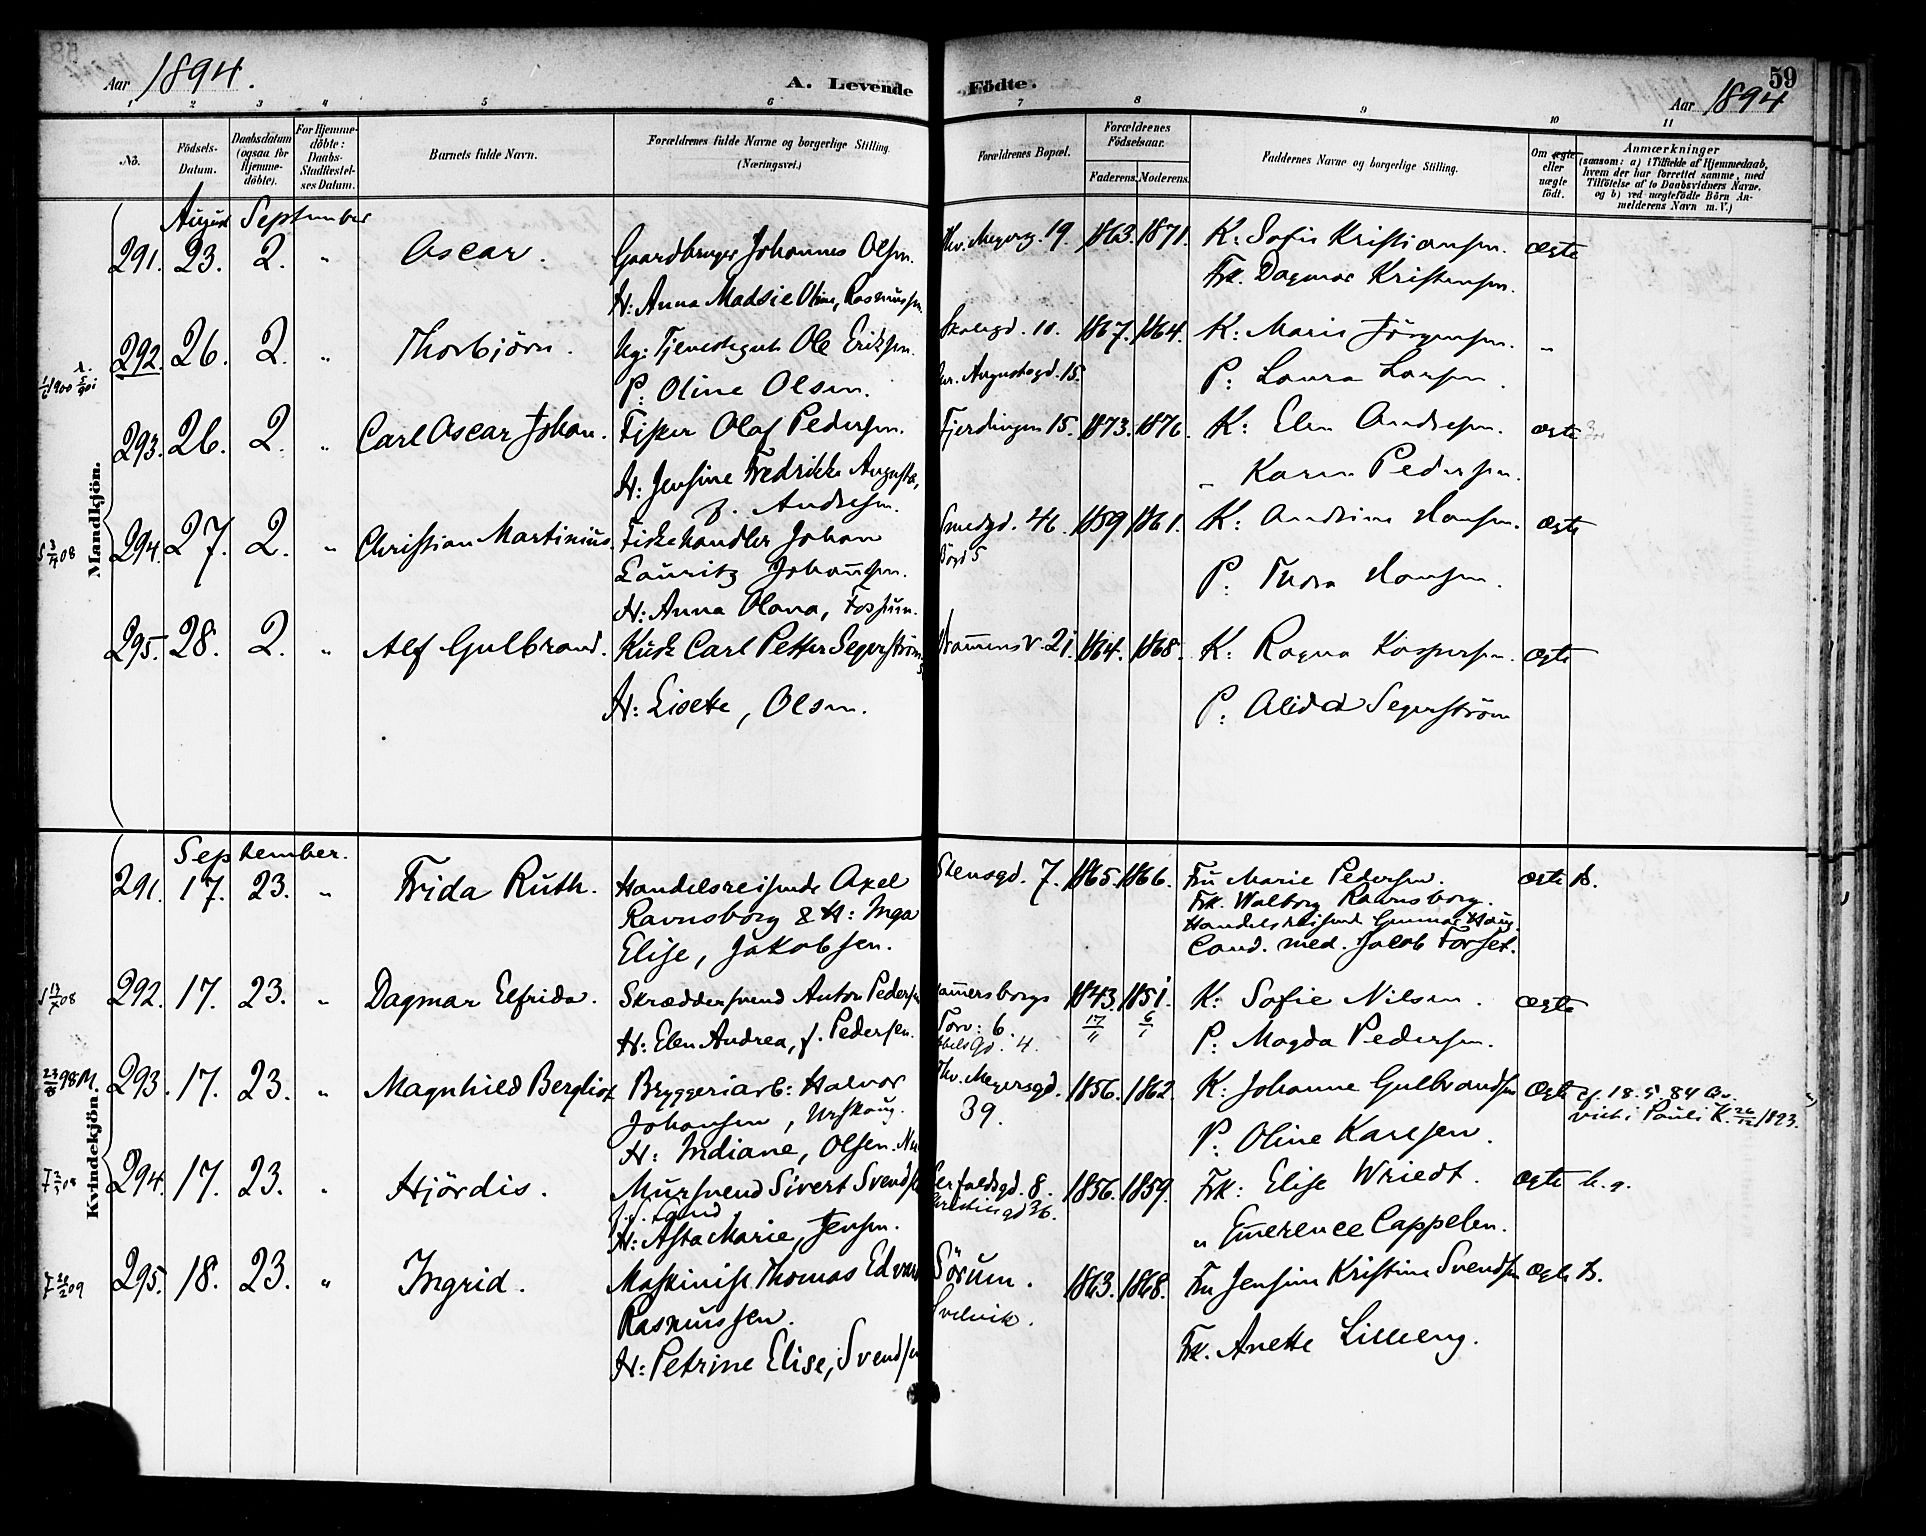 Aar 1894.
A. Levende Födte.
59
Aar 1894
1 2 3 4 5 6 7 8 9 10 11
No.
Födsels-Datum.
Daabsdatum (ogsaa for Hjemme-döbte).
For Hjemme-döbte: Daabs-Stadfæstel-ses Datum.
Barnets fulde Navn.
Forældrenes fulde Navne og borgerlige Stilling.
(Næringsvei.)
Forældrenes Bopæl.
Forældrenes Födselsaar.
Faderens. Moderens.
Faddernes Navne og borgerlige Stilling.
Om ægte eller uægte födt.
Anmærkninger
(saasom: a) i Tilfælde af Hjemmedaab,
hvem der har forrettet samme, med
Tilföielse af to Daabsvidners Navne,
og b) ved uægtefödte Börn An-
melderens Navn m. V.)
Mandkjön.
August September
291. 23. 2. " Ascar. Gaardbruger Johannes Olsen. Thv. Meyersg. 19. 1863. 1871. K: Sofie Kristiansen. ægte
H: Anna Madsie Oline, Rasmussen Frk. Dagmar Kristensen.
292. 26. 2. " Thorbjörn. Ug: Tjenestegut Ole Eriksen. 10. 1867. 1864. K: Marie Jörgensen. "
P: Oline Olsen. Augustsgd. 15. P: Laura Larsen.
293. 26. 2. " Carl Oscar Johan. Fisker Olaf Pedersen. Fjerdingen 15. 1873. 1876. K: Elen Andresen. ægte
H: Jensine Fredrikke Augusta, " Karen Pedersen.
f. Andresen.
294. 27. 2. " Christian Martinius. Fiskehandler Johan Smedgd. 46. 1859 1861. K: Andrine Hansen. ægte
Lauritz Johannsen. P: Thora Hansen.
H: Anna Olava, Fossum.
295. 28. 2. " Alf Gulbrand. Kusk Carl Petter Segerström Drammensv. 21. 1864. 1868. K: Ragna Kaspersen. ægte
H: Lisette, Olsen. P: Alida Segerström
Kvindekjön.
September.
291. 17. 23. " Frida Ruth. Handelsreisende Axel Stensgd. 7. 1865. 1866. Fru Marie Pedersen. ægte B.
Ravnsborg & H: Inga Frk. Walborg Ravnsborg.
Elise, Jakobsen. Handelsreisende Gunnar Haug.
Cand. med. Jacob Forset.
292. 17. 23. " Dagmar Elfrida. Skræddersvend Anton Pedersen Hammersborgs 1843. 1851. K: Sofie Nilsen. ægte
H: Elen Andrea, f. Pedersen. Torv: 6. P: Magda Pedersen.
293. 17. 23. " Magnhild Bergliot Bryggeriarb: Halvor Thv. Meyersgd. 1856. 1862. K: Johanne Gulbrandsen ægte
Johansen, Urskoug. 39. P: Oline Karlsen.
H: Indiane, Olsen.
cf. 18. 5. 84
viet i Pauli K. 26/12 1893.
294. 17. 23. " Hjördis. Mursvend Sivert Svendsen 8. 1856. 1859. Frk: Elise Wriedt. ægte
H: Asta Marie, Jensen. " Emerence Cappelen.
295. 18. 23. " Ingrid. Maskinist Thomas Edvard Sörum. 1863. 1868. Fru Jensine Kristine Svendsen ægte B.
Rasmussen. Svelvik. Frk. Anette Lilleeng.
H: Petrine Elise, Svendsen